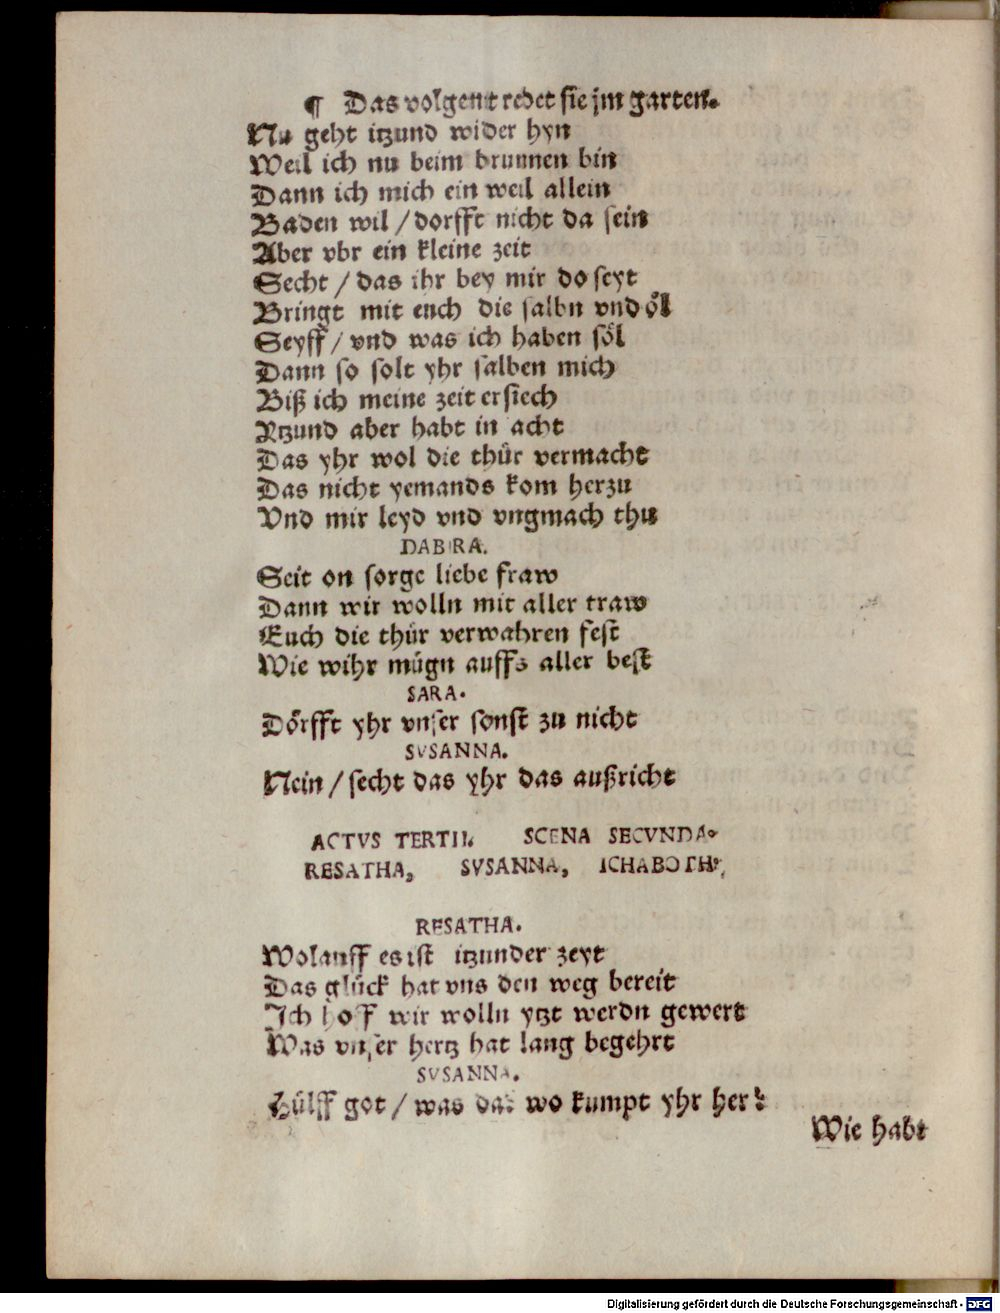 ¶ Das volgent redet sie jm garten.
Nu geht itzund wider hyn
Weil ich nu beim brunnen bin
Dann ich mich ein weil allein
Baden wil / dorfft nicht da sein
Aber vbr ein kleine zeit
Secht / das ihr bey mir do seyt
Bringt mit euch die salbn vnd öl
Seyff / vnd was ich haben söl
Dann so solt yhr salben mich
Biß ich meine zeit ersiech
Ytzund aber habt in acht
Das yhr wol die thür vermacht
Das nicht yemands kom herzu
Vnd mir leyd vnd vngmach thu
DABIRA.
Seit on sorge liebe fraw
Dann wir wolln mit aller traw
Euch die thür verwahren fest
Wie wihr mügn auffs aller best
SARA.
Dörfft yhr vnser sonst zu nicht
SVSANNA.
Nein / secht das yhr das außricht
ACTVS TERTII. SCENA SECVNDA.
RESATHA, SVSANNA, ICHABOTH,
RESATHA.
Wolauff es ist itzunder zeyt
Das glück hat vns den weg bereit
Ich hoff wir wolln ytzt werdn gewert
Was vnser hertz hat lang begehrt
SVSANNA.
Hülff got / was das wo kumpt yhr her?
Wie habt
Digitalisierung gefördert durch die Deutsche Forschungsgemeinschaft - DFG